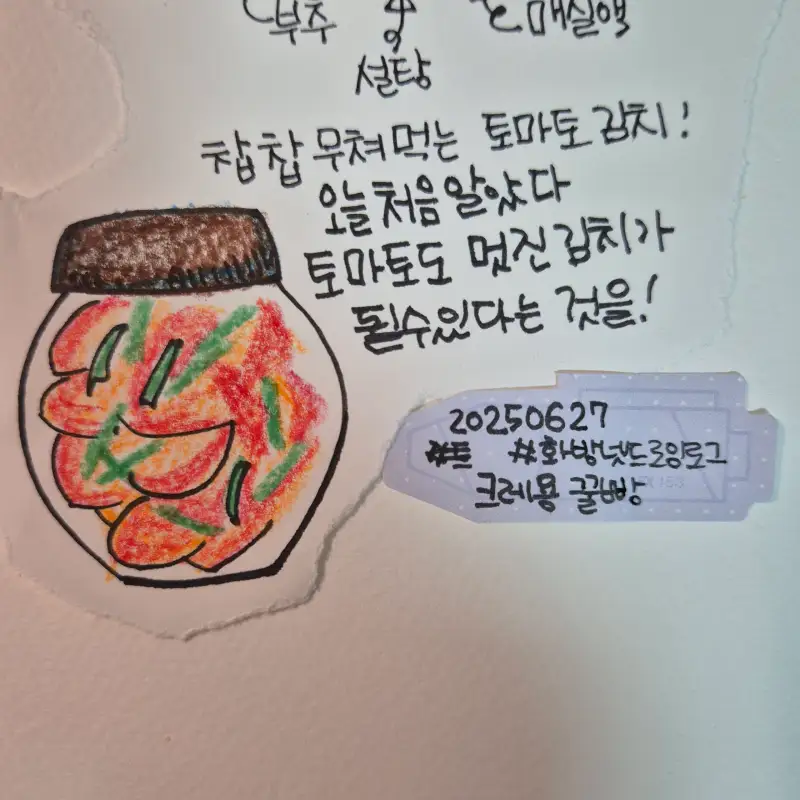 부추 매실액
설탕
찹찹 무쳐먹는 토마토 김치!
오늘 처음 알았다
토마토도 멋진 김치가
될수있다는 것을!
20250627
#화방넷드로잉로그
크레용 꿀빵